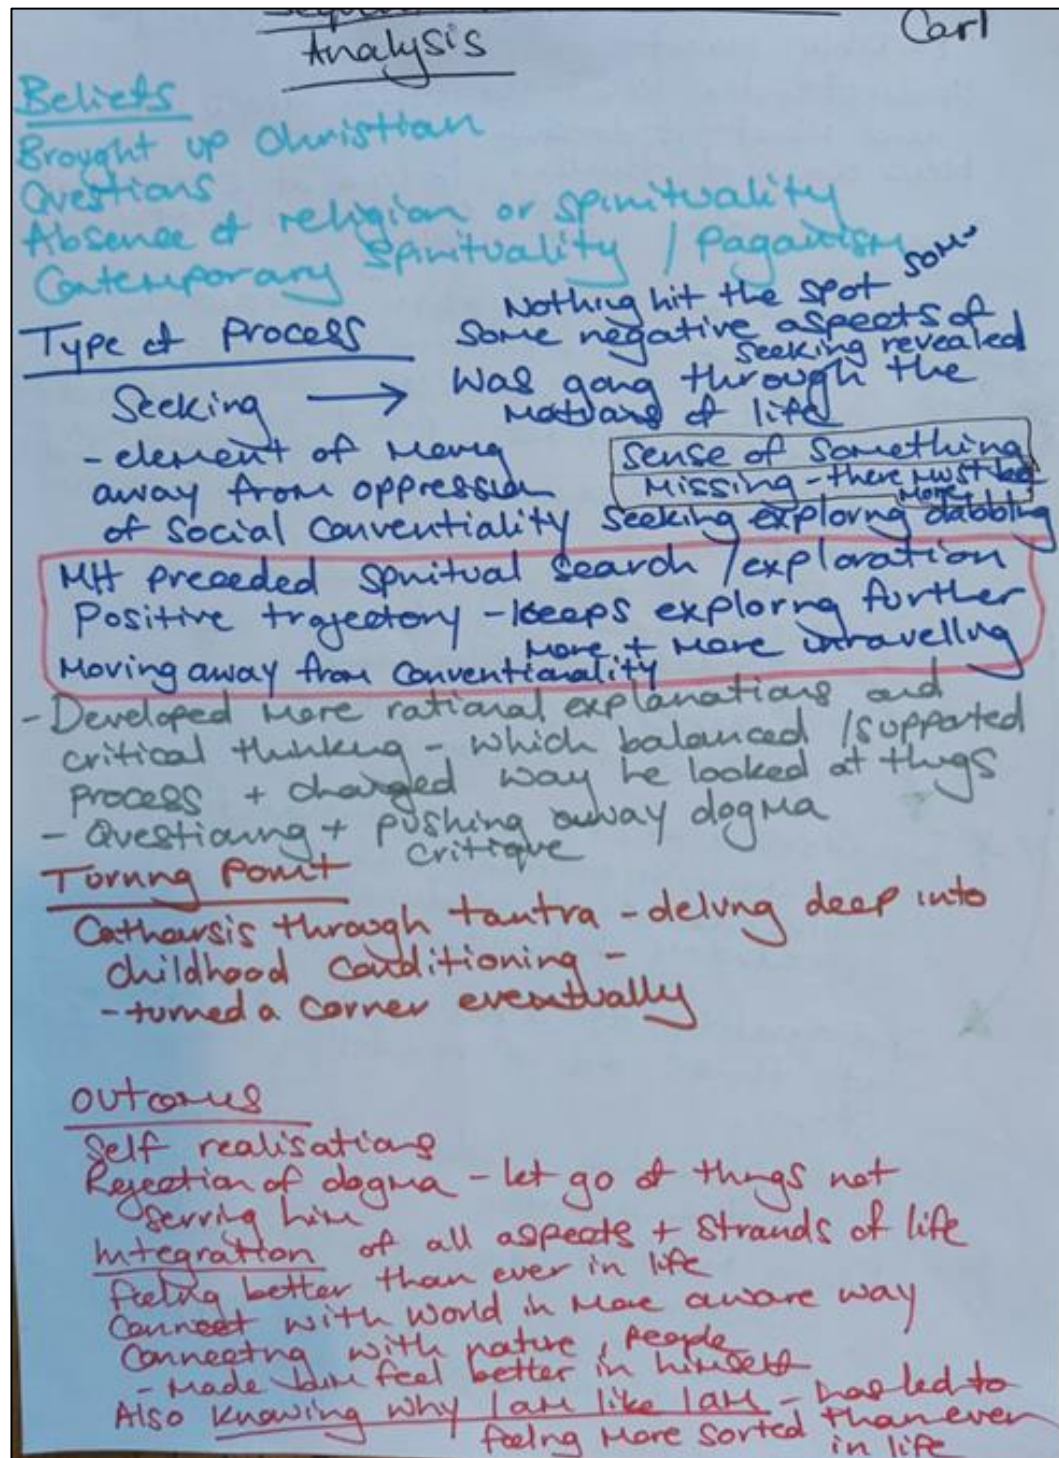 Analysis
Carl
Beliefs
Brought up Christian
Questions
Absence of religion or spirituality
Contemporary spirituality / Paganism
Type of Process
Seeking →
- element of moving
away from oppression
of social conventiality
Nothing hit the spot som-
some negative aspects of
seeking revealed
was going through the
motions of life
sense of something
missing - there must be
more
seeking exploring dabbling
MH preceded spiritual search / exploration
Positive trajectory - keeps exploring further
more + more unravelling
Moving away from conventionality
- Developed more rational explanations and
critical thinking - which balanced / supported
process + changed way he looked at things
- Questioning + pushing away dogma
critique
Turning Point
Catharsis through tantra - delving deep into
childhood conditioning -
- turned a corner eventually
Outcomes
Self realisations
Rejection of dogma - let go of things not
serving him
Integration of all aspects + strands of life
feeling better than ever in life
Connect with world in more aware way
Connecting with nature, people
- made him feel better in himself
Also knowing why I am like I am - has led to
feeling more sorted than ever
in life